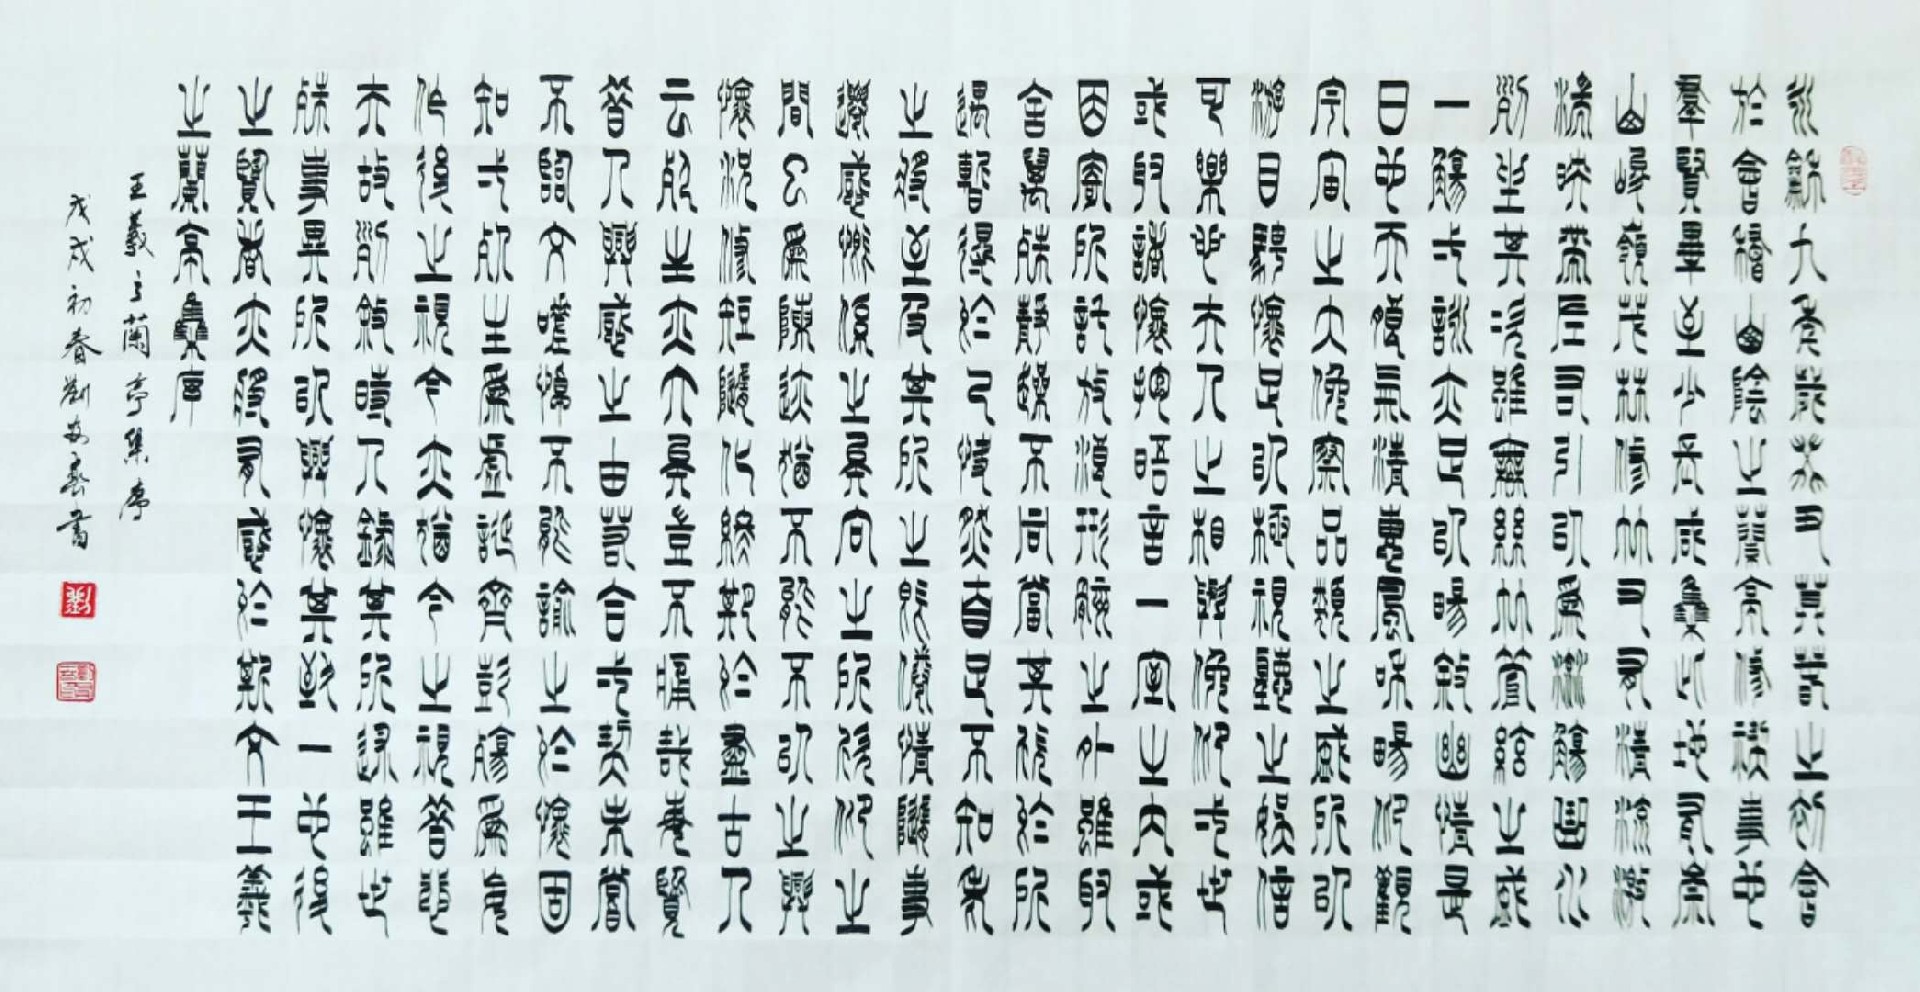 永龢九年歲癸丑暮春之初會
於會稽山陰之蘭亭修禊事也
羣賢畢至少長咸集此地有崇
山峻嶺茂林修竹又有清流激
湍映帶左右引以為流觴曲水
列坐其次雖無絲竹管絃之盛
一觴弌詠亦足以暢敘幽情是
日也天朗氣清惠風和暢仰觀
宇宙之大俯察品類之盛所以
游目騁懷足以極視聽之娛信
可樂也夫人之相與俯仰弌世
或取諸懷抱晤言一室之內或
因寄所託放浪形骸之外雖取
舍萬殊靜躁不同當其欣於所
遇暫得於己快然自足不知老
之將至及其所之既倦情隨事
遷感慨係之矣向之所欣仰之
間已為陳迹猶不能不以之興
懷況修短隨化終期於盡古人
云死生亦大矣豈不痛哉每覽
昔人興感之由若合弌契未嘗
不臨文嗟悼不能諭之於懷固
知弌死生為虛誕齊彭殤為妄
作後之視今亦猶今之視昔悲
夫故列敘時人錄其所述雖世
殊事異所以興懷其致一也後
之覽者亦將有感於斯文王羲
之蘭亭集序
王羲之蘭亭集序
戊戌初春劉安書